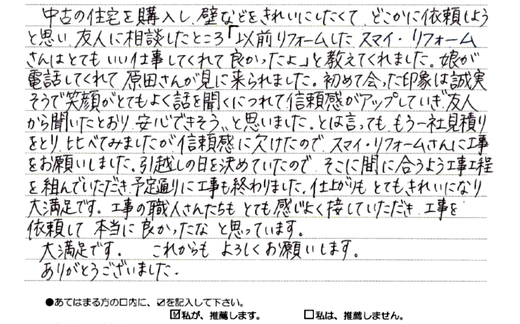 中古の住宅を購入し、壁などをきれいにしたくて、どこかに依頼しよう
と思い、友人に相談したところ「以前リフォームしたスマイ・リフォーム
さんはとてもいい仕事してくれて良かったよ」と教えてくれました。娘が
電話してくれて原田さんが見に来られました。初めて会った印象は誠実
そうで笑顔がとてもよく話を聞くにつれて信頼感がアップしていき、友人
から聞いたとおり、安心できそう、と思いました。とは言っても、もう一社見積り
をとり、比べてみましたが信頼感に欠けたので、スマイ・リフォームさんに工事
をお願いしました。引越しの日を決めていたので、そこに間に合うよう工事工程
を組んでいただき、予定通りに工事も終わりました。仕上がりも、とてもきれいになり
大満足です。工事の職人さんたちも、とても感じよく接していただき、工事を
依頼して、本当に良かったな、と思っています。
大満足です。これからも、よろしくお願いします。
ありがとうございました。
●あてはまる方の口内に、☑を記入して下さい。
☑私が、推薦します。 □私は、推薦しません。